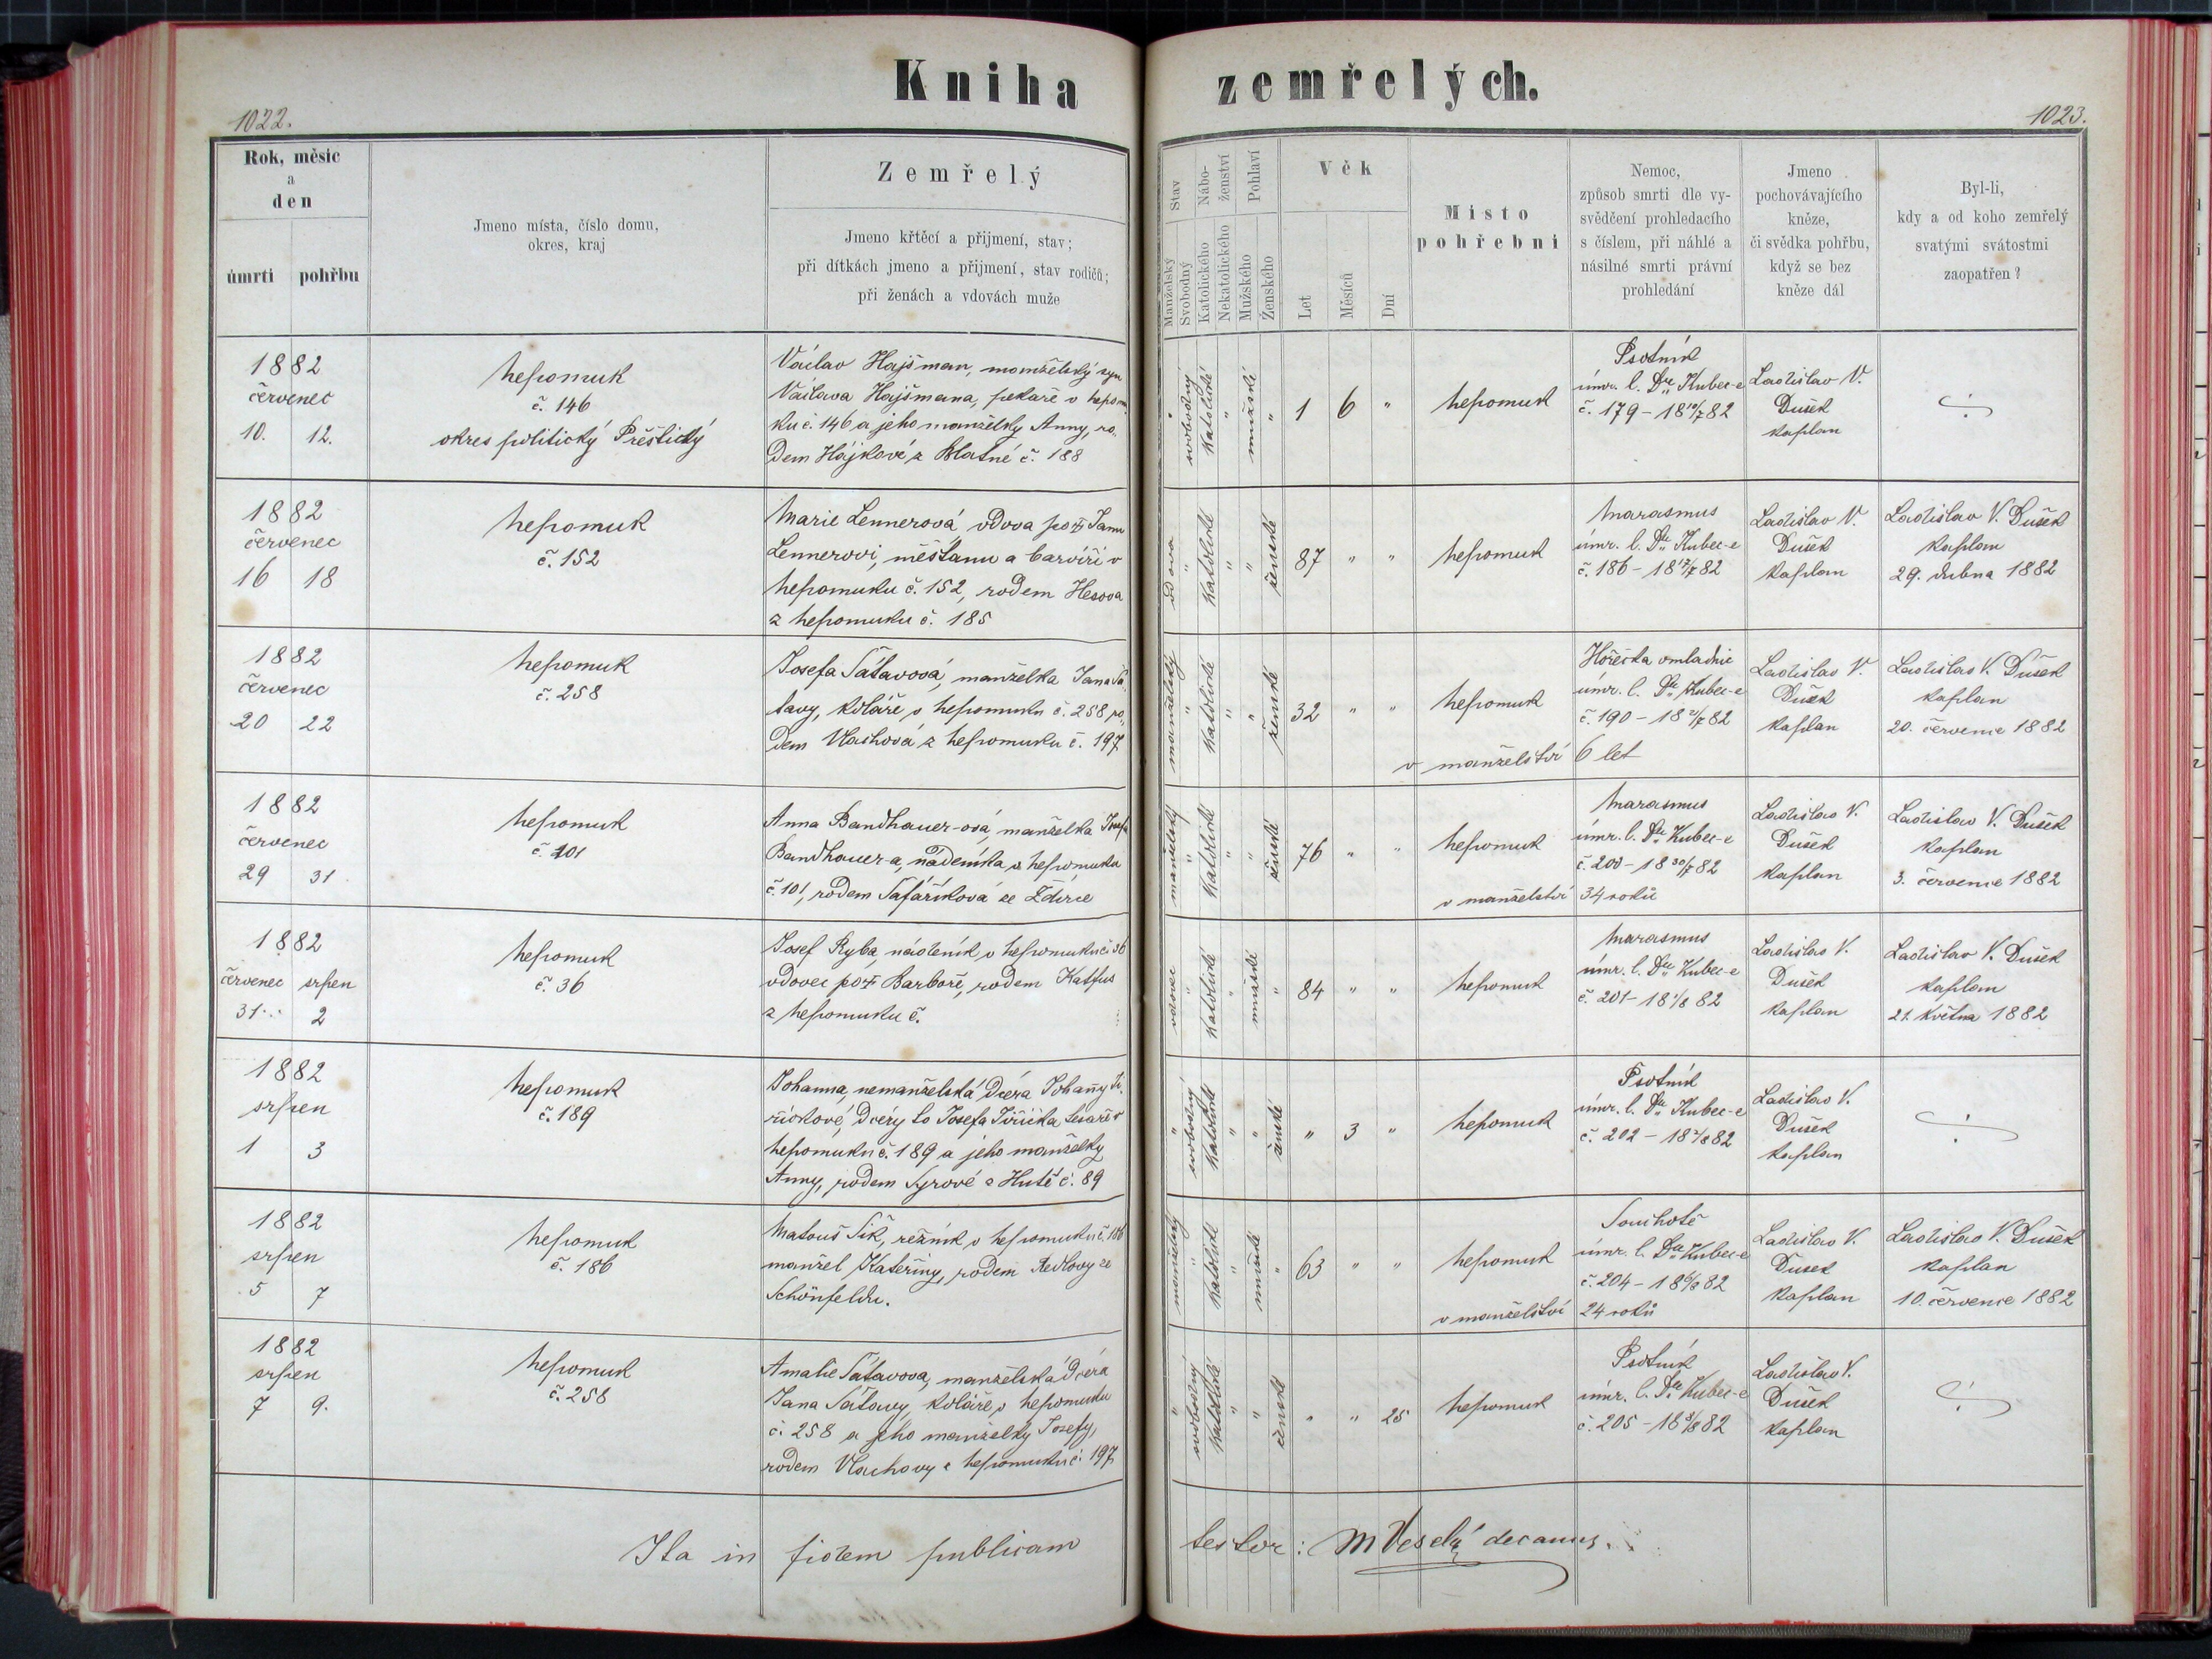 Kniha zemřelých.
1022.
1023.
Rok, měsíc
a
den
úmrtí pohřbu
Jmeno místa, číslo domu,
okres, kraj
Zemřelý
Jmeno křtěcí a přijmení, stav;
při dítkách jmeno a přijmení, stav rodičů;
při ženách a vdovách muže
Stav
Manželský
Svobodný
Nábo-
ženství
Katolického
Nekatolického
Pohlaví
Mužského
Ženského
Věk
Let
Měsíců
Dní
Místo
pohřební
Nemoc,
způsob smrti dle vy-
svědčení prohledacího
s číslem, při náhlé a
násilné smrti právní
prohledání
Jmeno
pochovávajícího
kněze,
či svědka pohřbu,
když se bez
kněze dál
Byl-li,
kdy a od koho zemřelý
svatými svátostmi
zaopatřen?
1882
červenec
10. 12.
Nepomuk
č. 146
okres politický Přeštický
Václav Hajšman, manželský syn
Václava Hajšmana, pekaře v Nepomu
ku č. 146 a jeho manželky Anny, ro„
dem Hájkové z Blatné č. 188
" svobodný katolické " mužské " 1 6 "
Nepomuk
Psotník
úmr. l. Dra Kubec-e
č. 179 – 18 10/7 82
Ladislav V.
Dušek
kaplan
1882
červenec
16 18
Nepomuk
č. 152
Marie Lennerová vdova po Janu
Lennerovi, měšťanu a barvíři v
Nepomuku č. 152, rodem Hesova
z Nepomuku č. 185
vdova " katolické " " ženské 87 " "
Nepomuk
Marasmus
úmr. l. Dra Kubec-e
č. 186 – 18 17/7 82
Ladislav V.
Dušek
kaplan
Ladislav V. Dušek
kaplan
29. dubna 1882
1882
červenec
20 22
Nepomuk
č. 258
Josefa Šátavová, manželka Jana Šá„
tavy, koláře v Nepomuku č. 258 ro„
dem Vlachová z Nepomuku č. 197
manželský " katolické " " ženské 32 " "
Nepomuk
Hořečka omladnic
úmr. l. Dra Kubec-e
č. 190 – 18 21/7 82
v manželství 6 let
Ladislav V.
Dušek
kaplan
Ladislav V. Dušek
kaplan
20. července 1882
1882
červenec
29 31
Nepomuk
č. 101
Anna Bandhauer-ová, manželka Josefa
Bandhauer-a, nádeníka v Nepomuku
č. 101, rodem Šafaříková ze Ždírce
manželský " katolické " " ženské 76 " "
Nepomuk
Marasmus
úmr. l. Dra Kubec-e
č. 200 – 18 30/7 82
v manželství 34 roků
Ladislav V.
Dušek
kaplan
Ladislav V. Dušek
kaplan
3. července 1882
1882
červenec srpen
31 2
Nepomuk
č. 36
Josef Ryba, nádeník v Nepomuku č. 36
vdovec po Barboře, rodem
z Nepomuku č.
vdovec " katolické " mužské " 84 " "
Nepomuk
Marasmus
úmr. l. Dra Kubec-e
č. 201 – 18 1/8 82
Ladislav V.
Dušek
kaplan
Ladislav V. Dušek
kaplan
21. května 1882
1882
srpen
1 3
Nepomuk
č. 189
Johanna, nemanželská dcera Johany Ji„
řičkové, dcery to Josefa Jiřička tesaře v
Nepomuku č. 189 a jeho manželky
Anny, rodem Syrové z Hutě č. 89
" svobodný katolické " " ženské " 3 "
Nepomuk
Psotník
úmr. l. Dra Kubec-e
č. 202 – 18 2/8 82
Ladislav V.
Dušek
kaplan
1882
srpen
5 7
Nepomuk
č. 186
Matouš Šik, řezník v Nepomuku č. 186
manžel Kateřiny, rodem Redlovy ze
Schönfeldu.
manželský " katolické " mužské " 63 " "
Nepomuk
Souchotě
úmr. l. Dra Kubec-e
č. 204 – 18 6/8 82
v manželství 24 roků
Ladislav V.
Dušek
kaplan
Ladislav V. Dušek
kaplan
10. července 1882
1882
srpen
7 9.
Nepomuk
č. 258
Amalie Šátavova, manželská dcera
Jana Šátavy, koláře v Nepomuku
č. 258 a jeho manželky Josefy,
rodem Vlachovy z Nepomuku č. 197
" svobodný katolické " " ženské " " 25
Nepomuk
Psotník
úmr. l. Dra Kubec-e
č. 205 – 18 8/8 82
Ladislav V.
Dušek
kaplan
Ita in fidem publicam testor: M Veselý decanus.